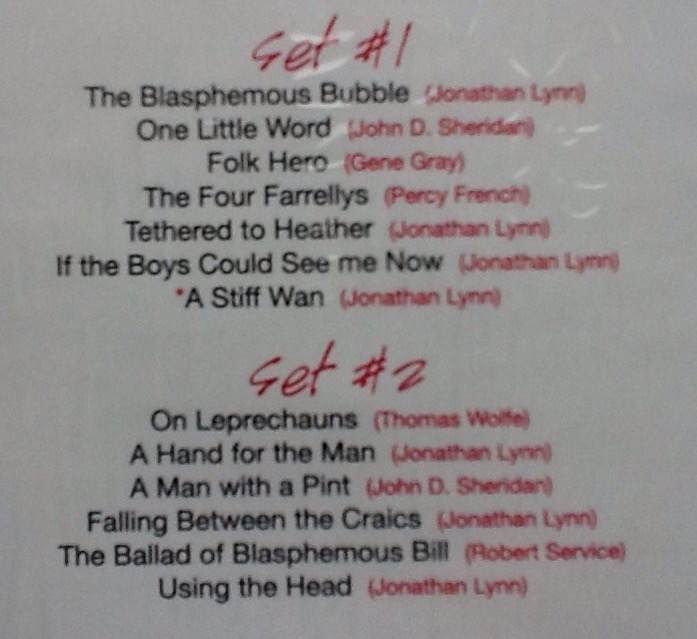 Set #1
The Blasphemous Bubble (Jonathan Lynn)
One Little Word (John D. Sheridan)
Folk Hero (Gene Gray)
The Four Farrellys (Percy French)
Tethered to Heather (Jonathan Lynn)
If the Boys Could See me Now (Jonathan Lynn)
*A Stiff Wan (Jonathan Lynn)
Set #2
On Leprechauns (Thomas Wolfe)
A Hand for the Man (Jonathan Lynn)
A Man with a Pint (John D. Sheridan)
Falling Between the Craics (Jonathan Lynn)
The Ballad of Blasphemous Bill (Robert Service)
Using the Head (Jonathan Lynn)